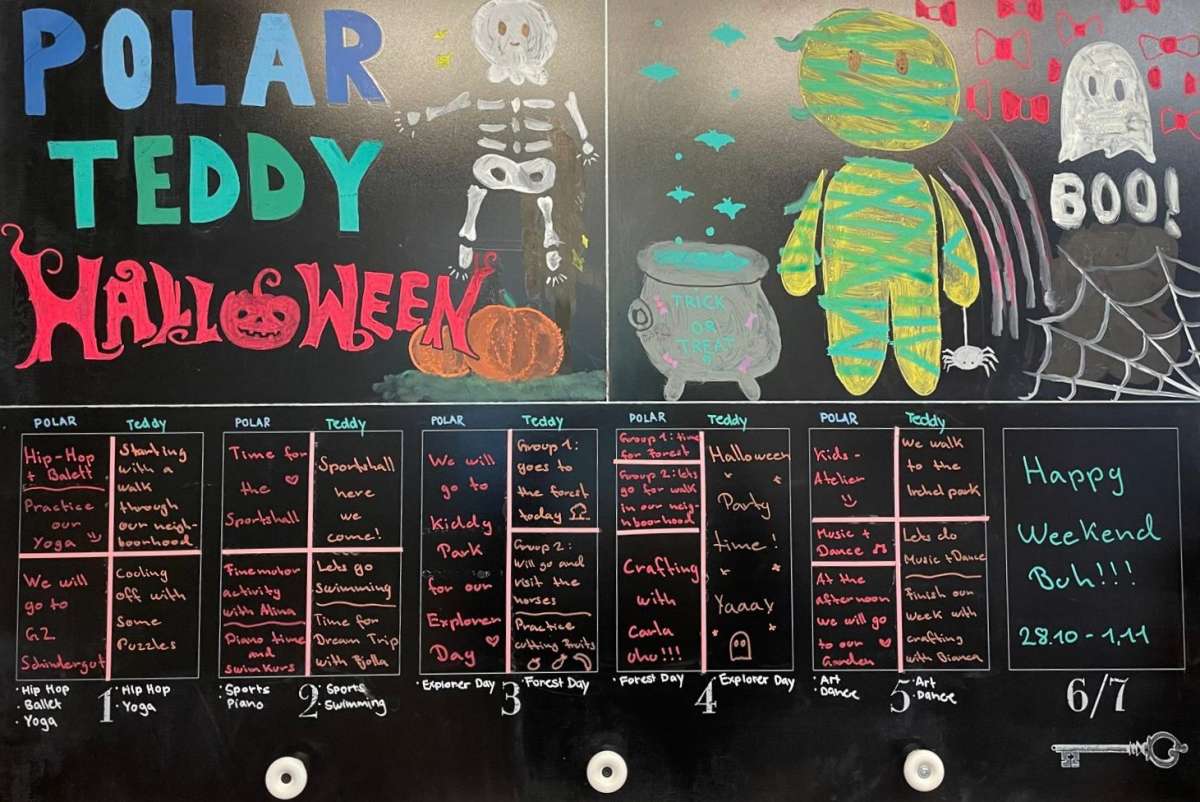 POLAR
TEDDY
HALLOWEEN
TRICK
OR
TREAT
BOO!
POLAR
Teddy
Hip-Hop
+ Balett
Practice
our
Yoga
We will
go to
GZ
Schindergut
Starting
with a
walk
through
our neigh-
boorhood
Cooling
off with
some
Puzzles
· Hip Hop
· Ballet
· Yoga
1
· Hip Hop
· Yoga
POLAR
Teddy
Time for
the
Sportshall
Finemotor
activity
with Alina
Piano time
and
swimkurs
Sportshall
here
we
come!
Lets go
Swimming
Time for
Dream Trip
with Fjolla
· Sports
Piano
2
· Sports
· Swimming
POLAR
Teddy
We will
go to
Kiddy
Park
for our
Explorer
Day
Group 1:
goes to
the forest
today
Group 2:
will go and
visit the
horses
Practice
cutting fruits
· Explorer Day
3
· Forest Day
POLAR
Teddy
Group 1: time
for forest
Group 2: lets
go for walk
in our neig-
hboorhood
Crafting
with
Carla
uhu!!!
Halloween
Party
time!
Yaaay
· Forest Day
4
· Explorer Day
POLAR
Teddy
Kids-
Atelier
Music +
Dance
At the
afternoon
we will go
to our
Garden
We walk
to the
Irchel park
Lets do
Music + Dance
Finish our
week with
crafting
with Bianca
· Art
· Dance
5
· Art
· Dance
Happy
Weekend
Buh!!!
28.10 - 1.11
6/7